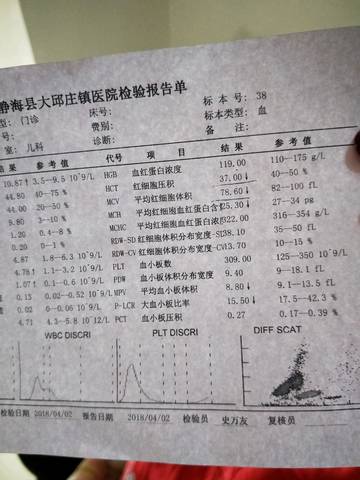 静海县大邱庄镇医院检验报告单
型: 门诊 床号: 标本号: 38
号: 费别: 标本类型: 血
室: 儿科 诊断: 备注:
结果 参考值 代号 项目 结果 参考值
10.87↑ 3.5--9.5 10^9/L HGB 血红蛋白浓度 119.00 110--175 g/L
44.80 40--75 % HCT 红细胞压积 37.00↓ 40--50 %
44.00 20--50 % MCV 平均红细胞体积 78.60↓ 82--100 fL
9.80 3--10 % MCH 平均红细胞血红蛋白含 25.30↓ 27--34 pg
1.20 0.4--8 % MCHC 平均红细胞血红蛋白浓 322.00 316--354 g/L
0.20 0--1 % RDW-SD 红细胞体积分布宽度-S 38.10 35--50 fL
4.87 1.8--6.3 10^9/L RDW-CV 红细胞体积分布宽度-C 13.70 10--15 %
4.78↑ 1.1--3.2 10^9/L PLT 血小板数 309.00 125--350 10^9/L
1.07↑ 0.1--0.6 10^9/L PDW 血小板体积分布宽度 9.40 9--18.1 fL
0.13 0.02--0.52 10^9/L MPV 平均血小板体积 8.80↓ 9.1--13.5 fL
0.02 0--0.06 10^9/L P-LCR 大血小板比率 15.50↓ 17.5--42.3 %
4.71 4.3--5.8 10^12/L PCT 血小板压积 0.27 0.17--0.39 %
WBC DISCRI PLT DISCRI DIFF SCAT
检验日期 2018/04/02 报告日期 2018/04/02 检验员 史万友 复核员